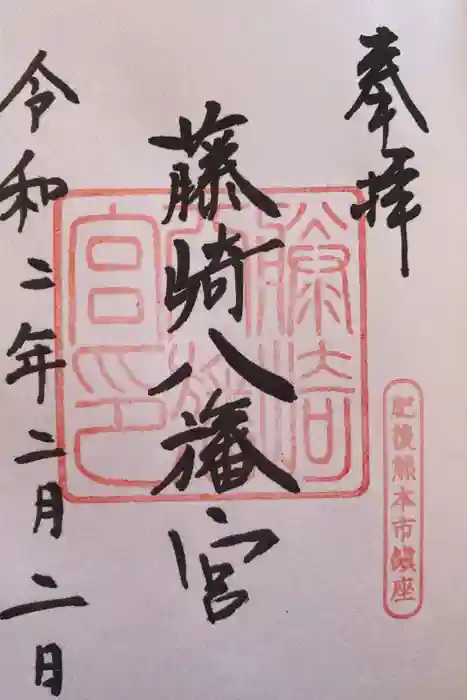 奉拝
肥後熊本市鎮座
藤崎八旛宮
藤崎八旛宮印
令和二年二月二日